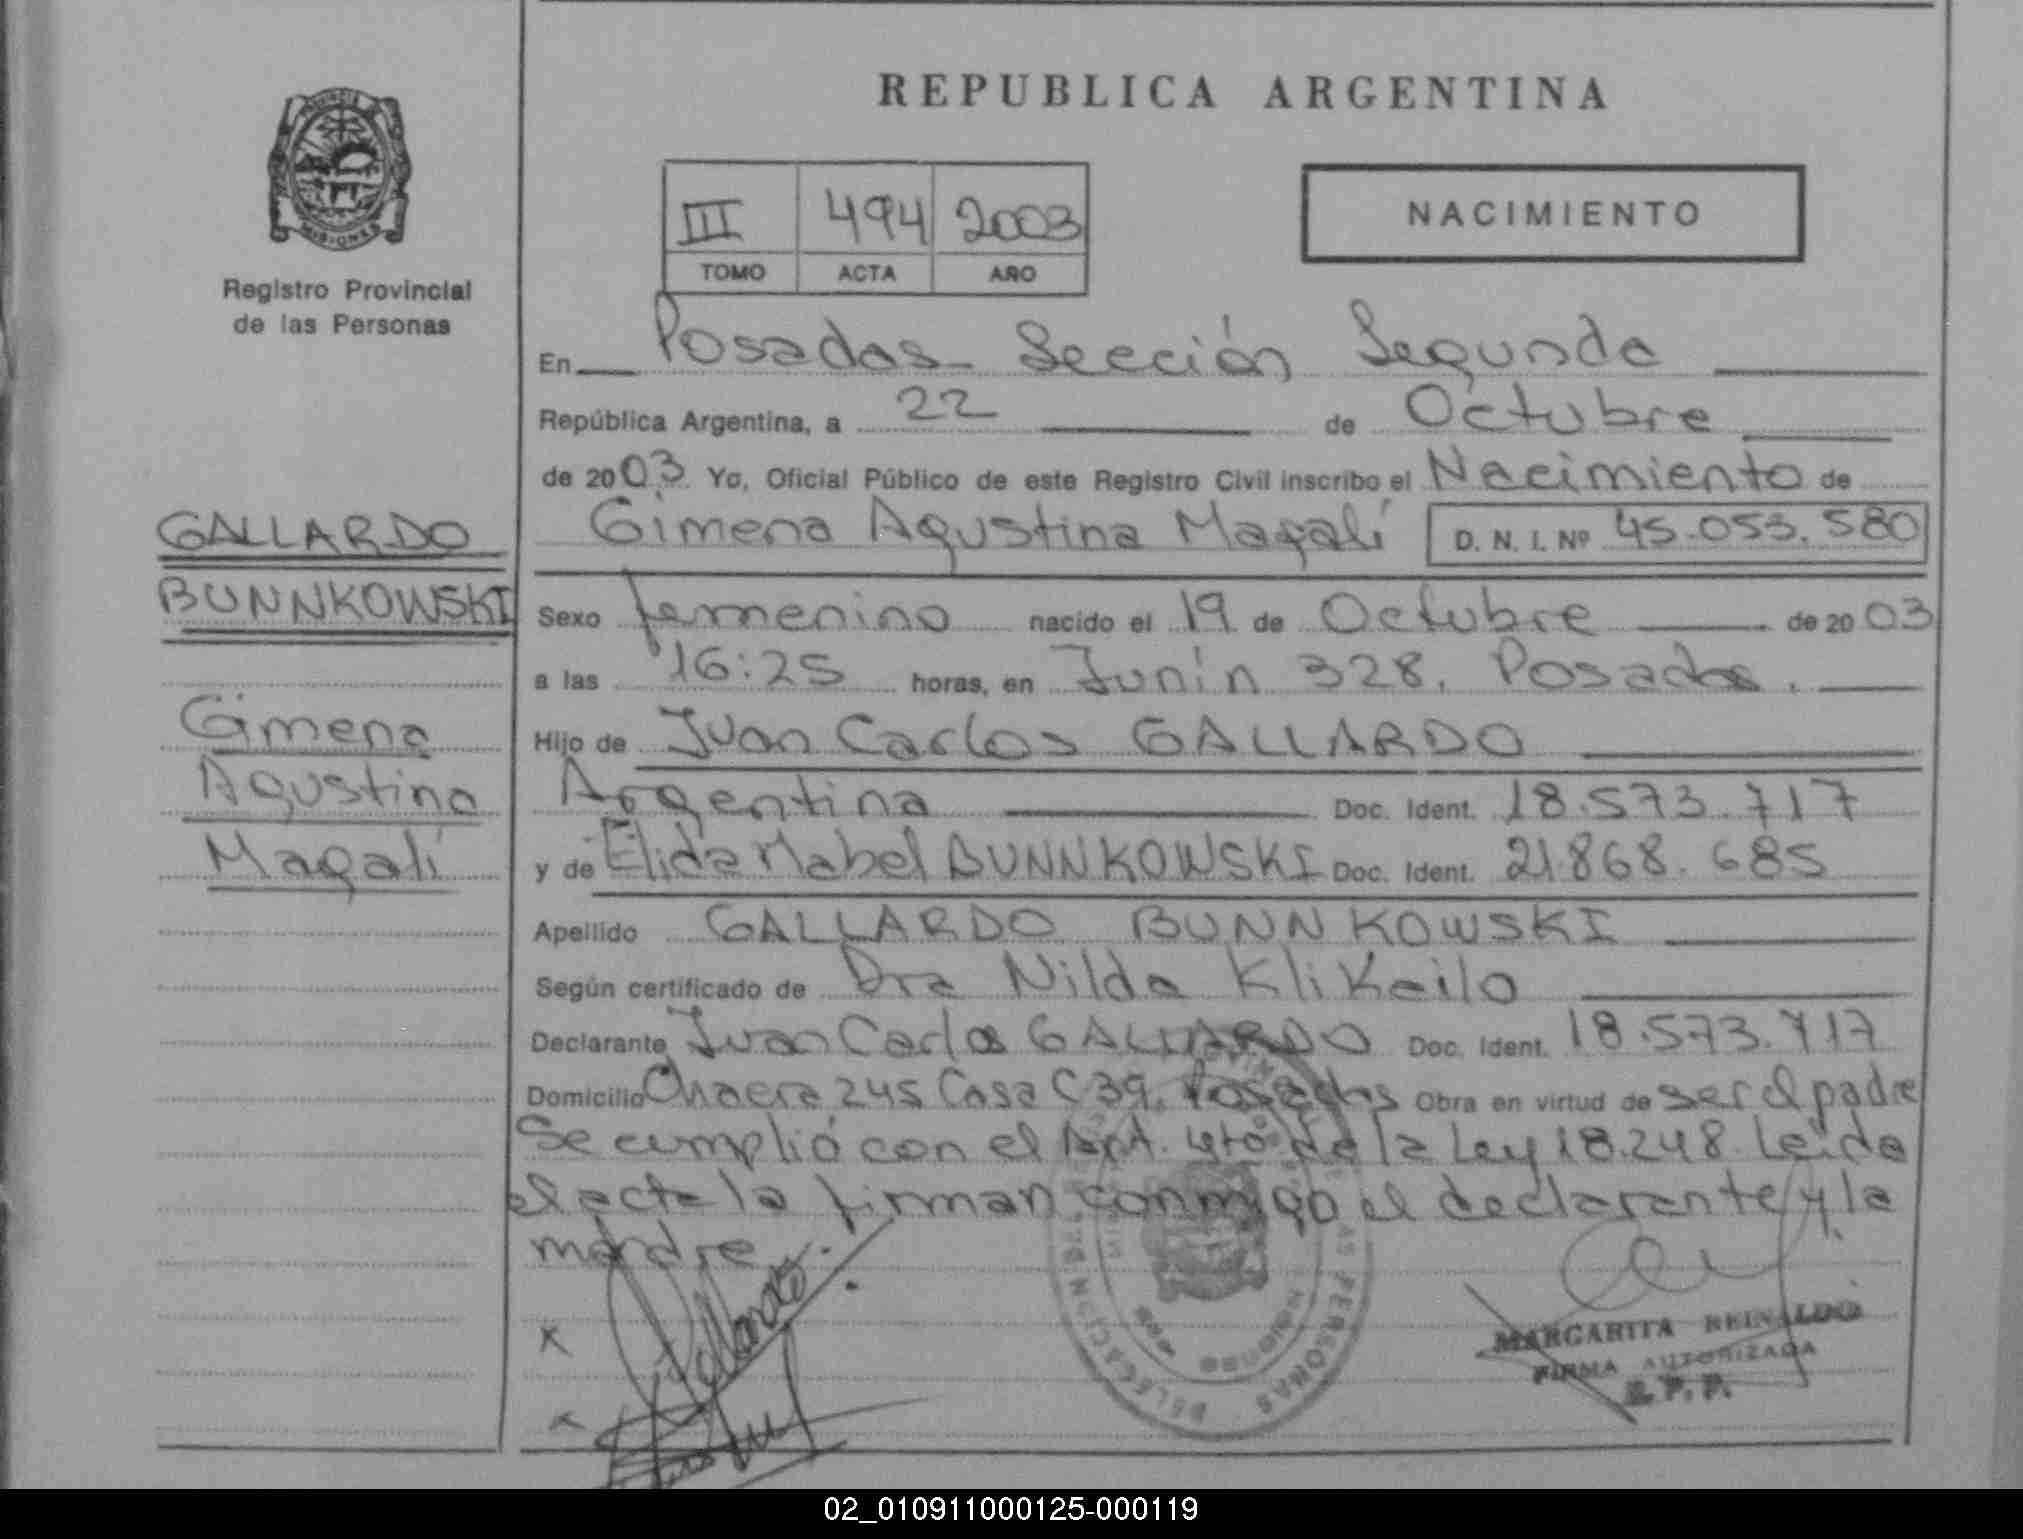 REPUBLICA ARGENTINA
PROVINCIA
MISIONES
Registro Provincial
de las Personas
III 494 2003
TOMO ACTA AÑO
NACIMIENTO
En Posadas Sección Segunda
República Argentina, a 22 de Octubre
de 2003. Yo, Oficial Público de este Registro Civil inscribo el Nacimiento de
Gimena Agustina Magalí D. N. I. Nº 45.053.580
GALLARDO
BUNNKOWSKI
Gimena
Agustina
Magalí
Sexo femenino nacido el 19 de Octubre de 2003
a las 16:25 horas, en Junín 328. Posadas.
Hijo de Juan Carlos GALLARDO
Argentina Doc. Ident. 18.573.717
y de Elida Mabel BUNNKOWSKI Doc. Ident. 21.868.685
Apellido GALLARDO BUNNKOWSKI
Según certificado de Dra Nilda Klikailo
Declarante Juan Carlos GALLARDO Doc. Ident. 18.573.717
Domicilio Chacra 245 Casa C 39. Posadas Obra en virtud de ser el padre
Se cumplió con el Art. 4to de la Ley 18.248. Leída
el acta la firman conmigo el declarante y la
madre.
Gallardo
MARGARITA REINALDO
FIRMA AUTORIZADA
R. P. P.
02_010911000125-000119